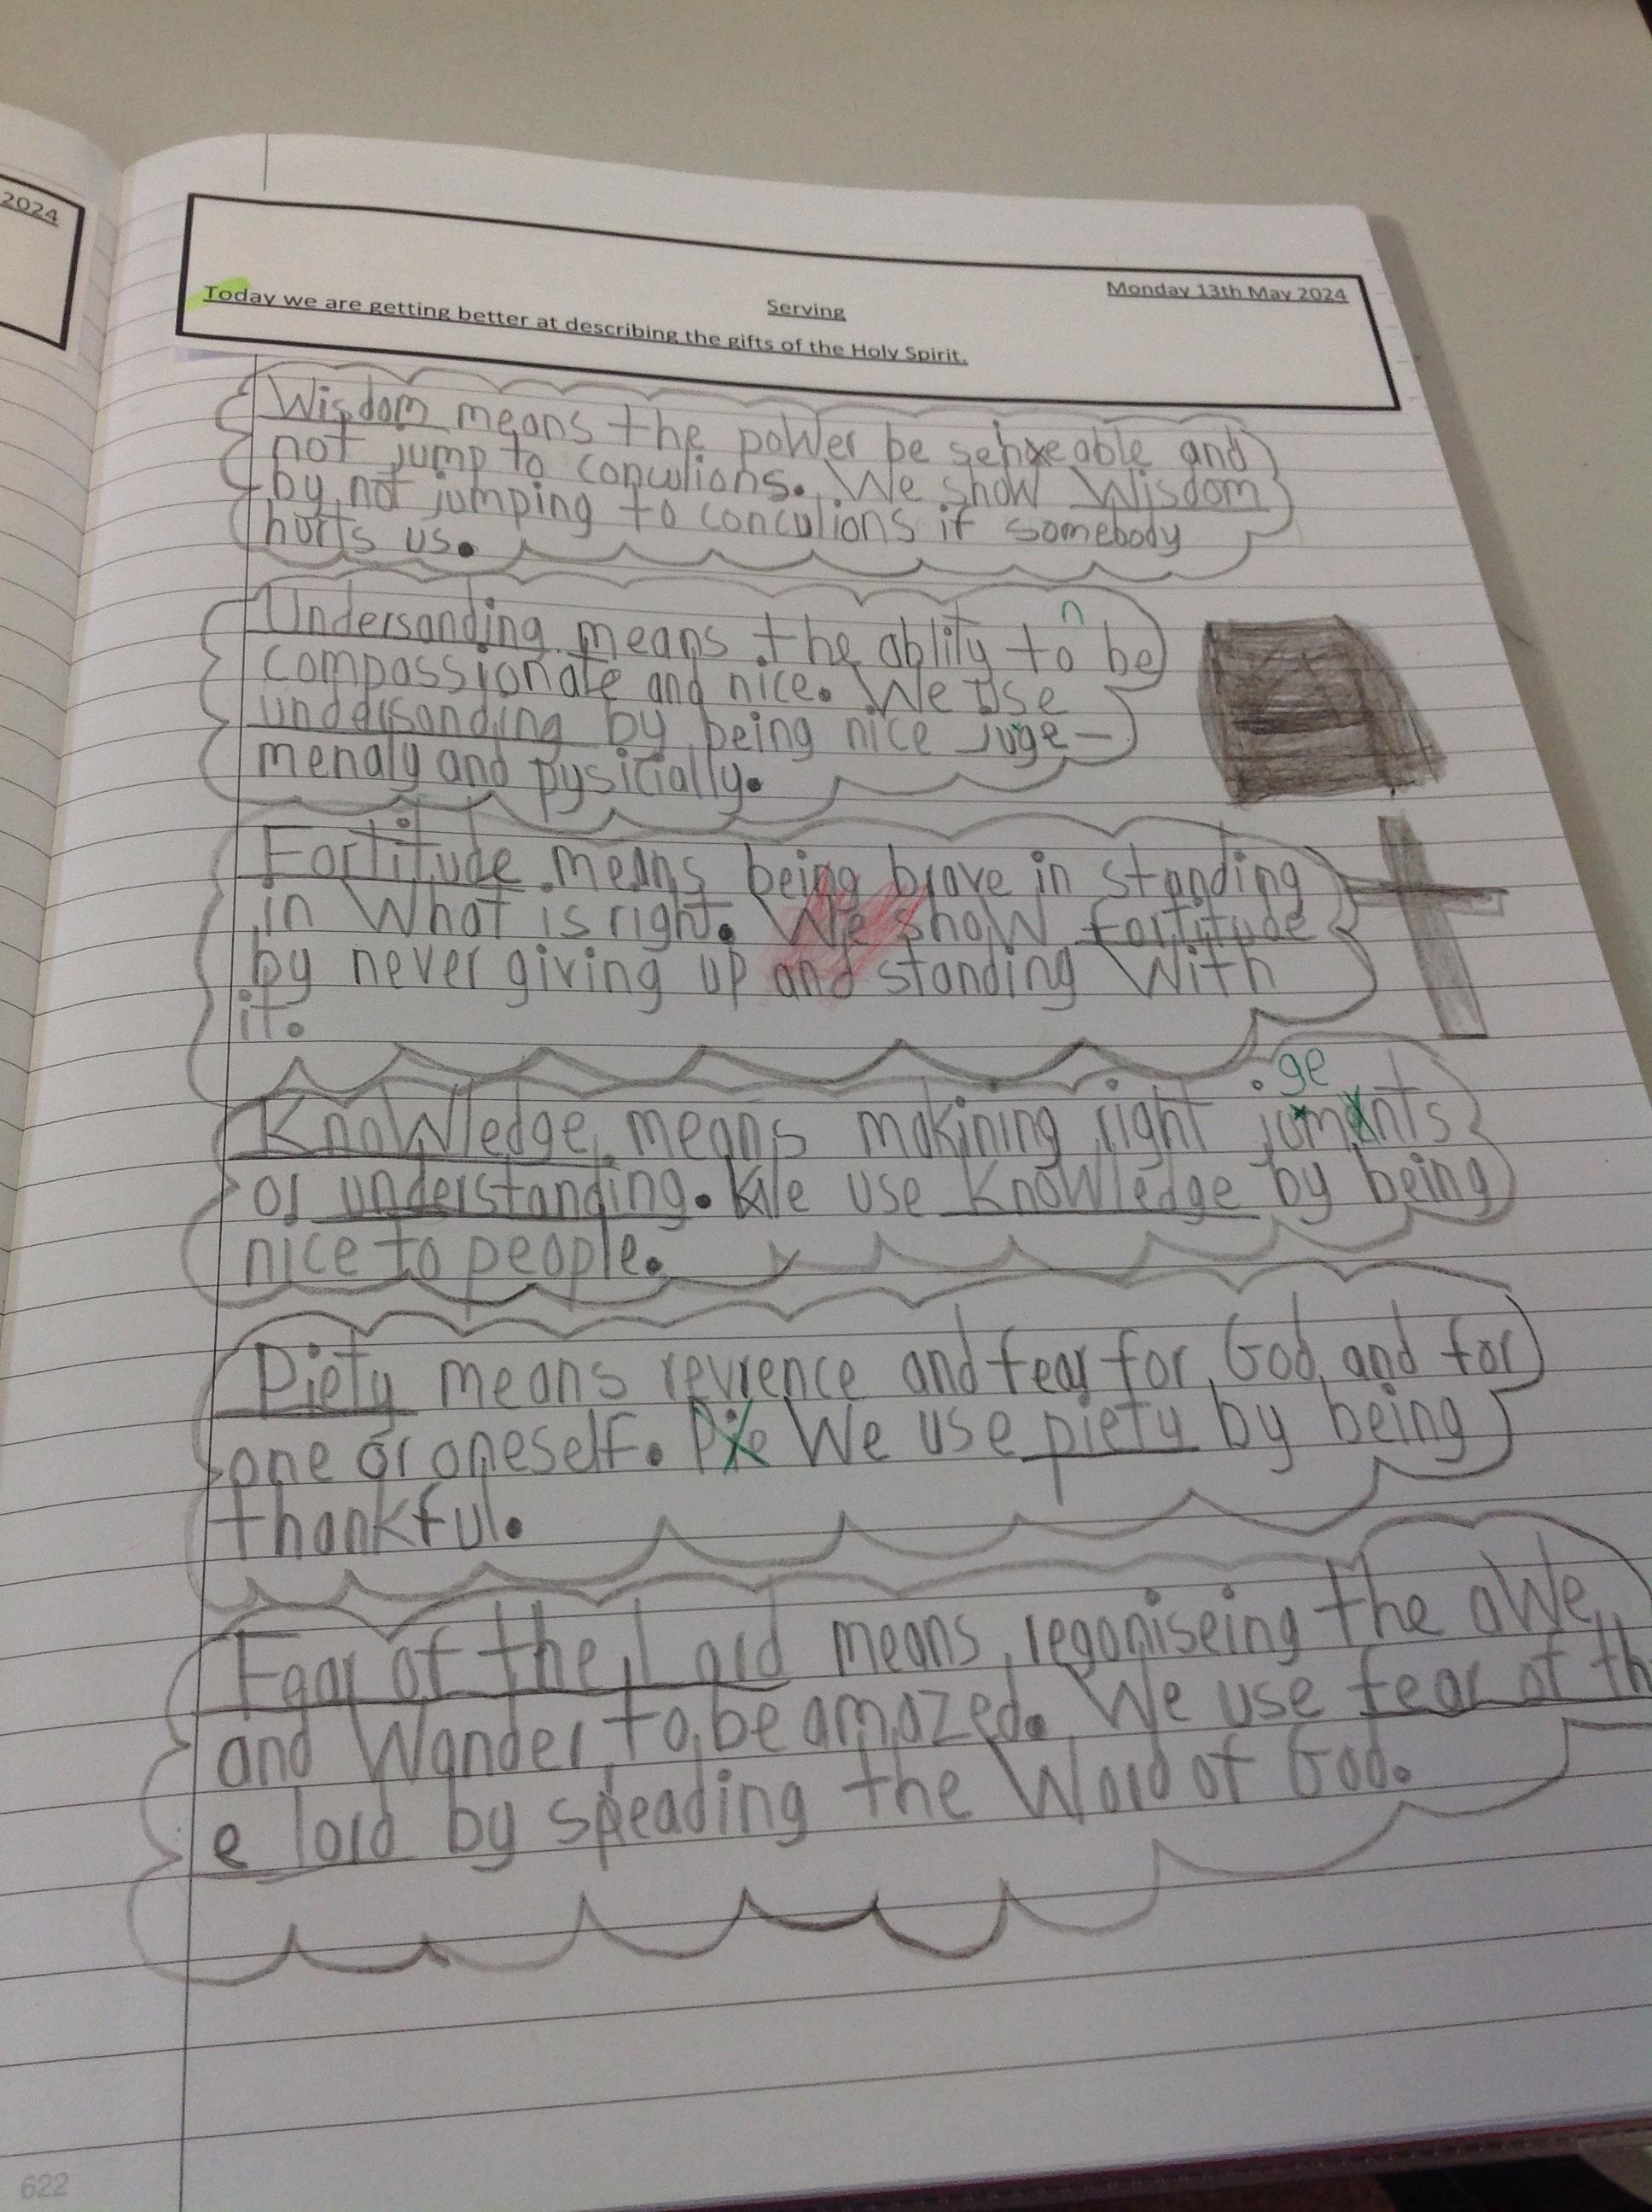 2024
Monday 13th May 2024
Serving
Today we are getting better at describing the gifts of the Holy Spirit.
Wisdom means the power be senseable and
not jump to conculions. We show Wisdom
by not jumping to conculions if somebody
hurts us.
n
Undersanding means the ablity to be
compassionate and nice. We use
undersanding by being nice juge-
menaly and pysicially.
Fortitude means being brave in standing
in What is right. We show fortitude
by never giving up and standing With
it.
ge
KnoWledge means makining right juments
or understanding. We use KnoWledge by being
nice to people.
Piety means revrence and fear for God and for
one or oneself. Pie We use piety by being
thankful.
Fear of the Lord means regoniseing the aWe
and Wander to be amazed. We use fear of th
e lord by speading the Word of God.
622